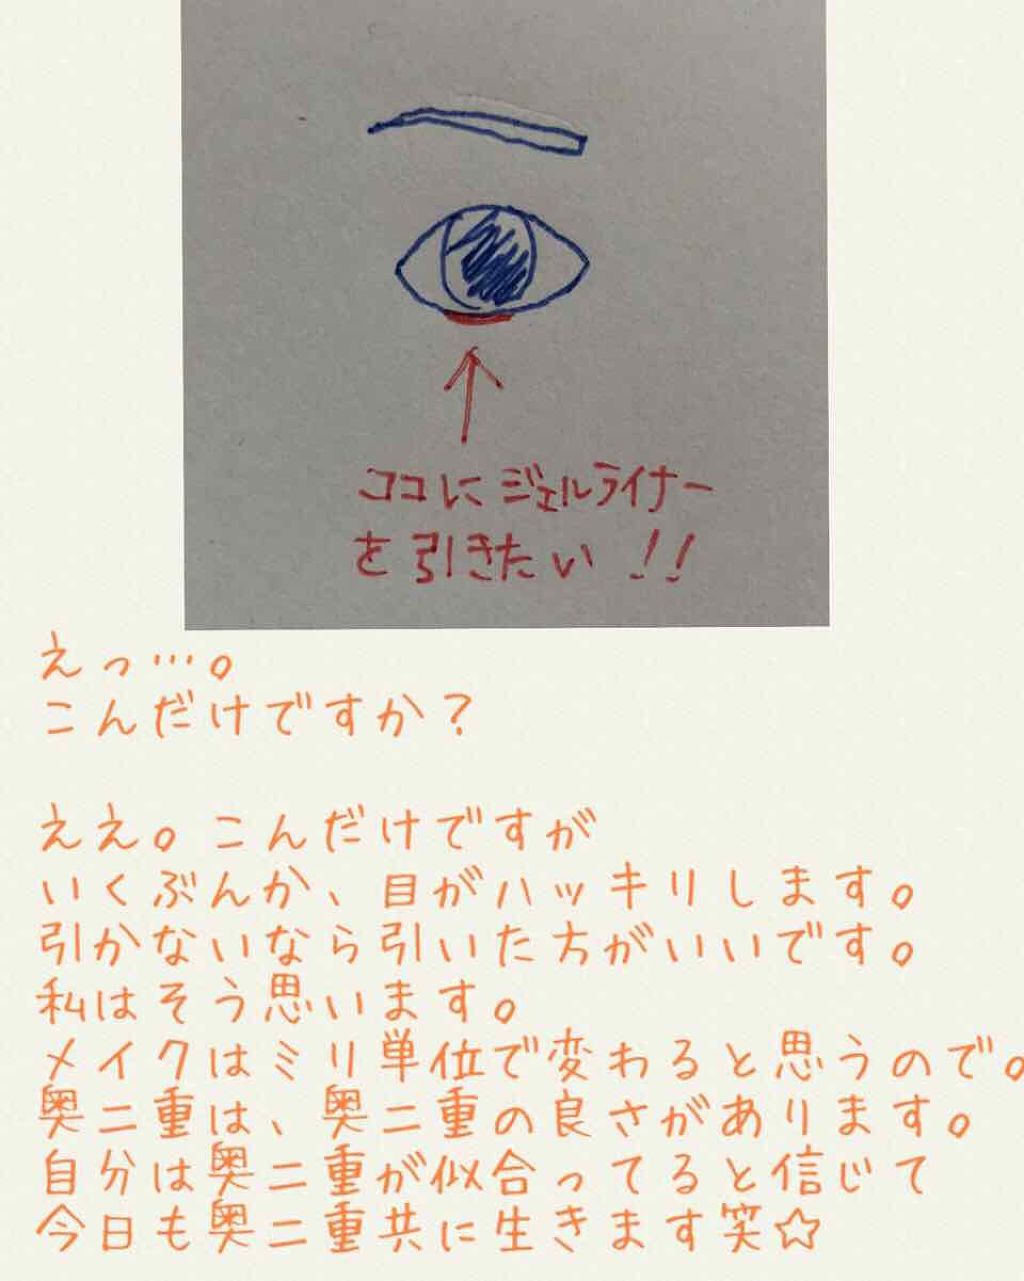 ココにジェルライナー
を引きたい!!
えっ…。
こんだけですか?
ええ。こんだけですが
いくぶんか、目がハッキリします。
引かないなら引いた方がいいです。
私はそう思います。
メイクはミリ単位で変わると思うので。
奥二重は、奥二重の良さがあります。
自分は奥二重が似合ってると信じて
今日も奥二重共に生きます笑☆